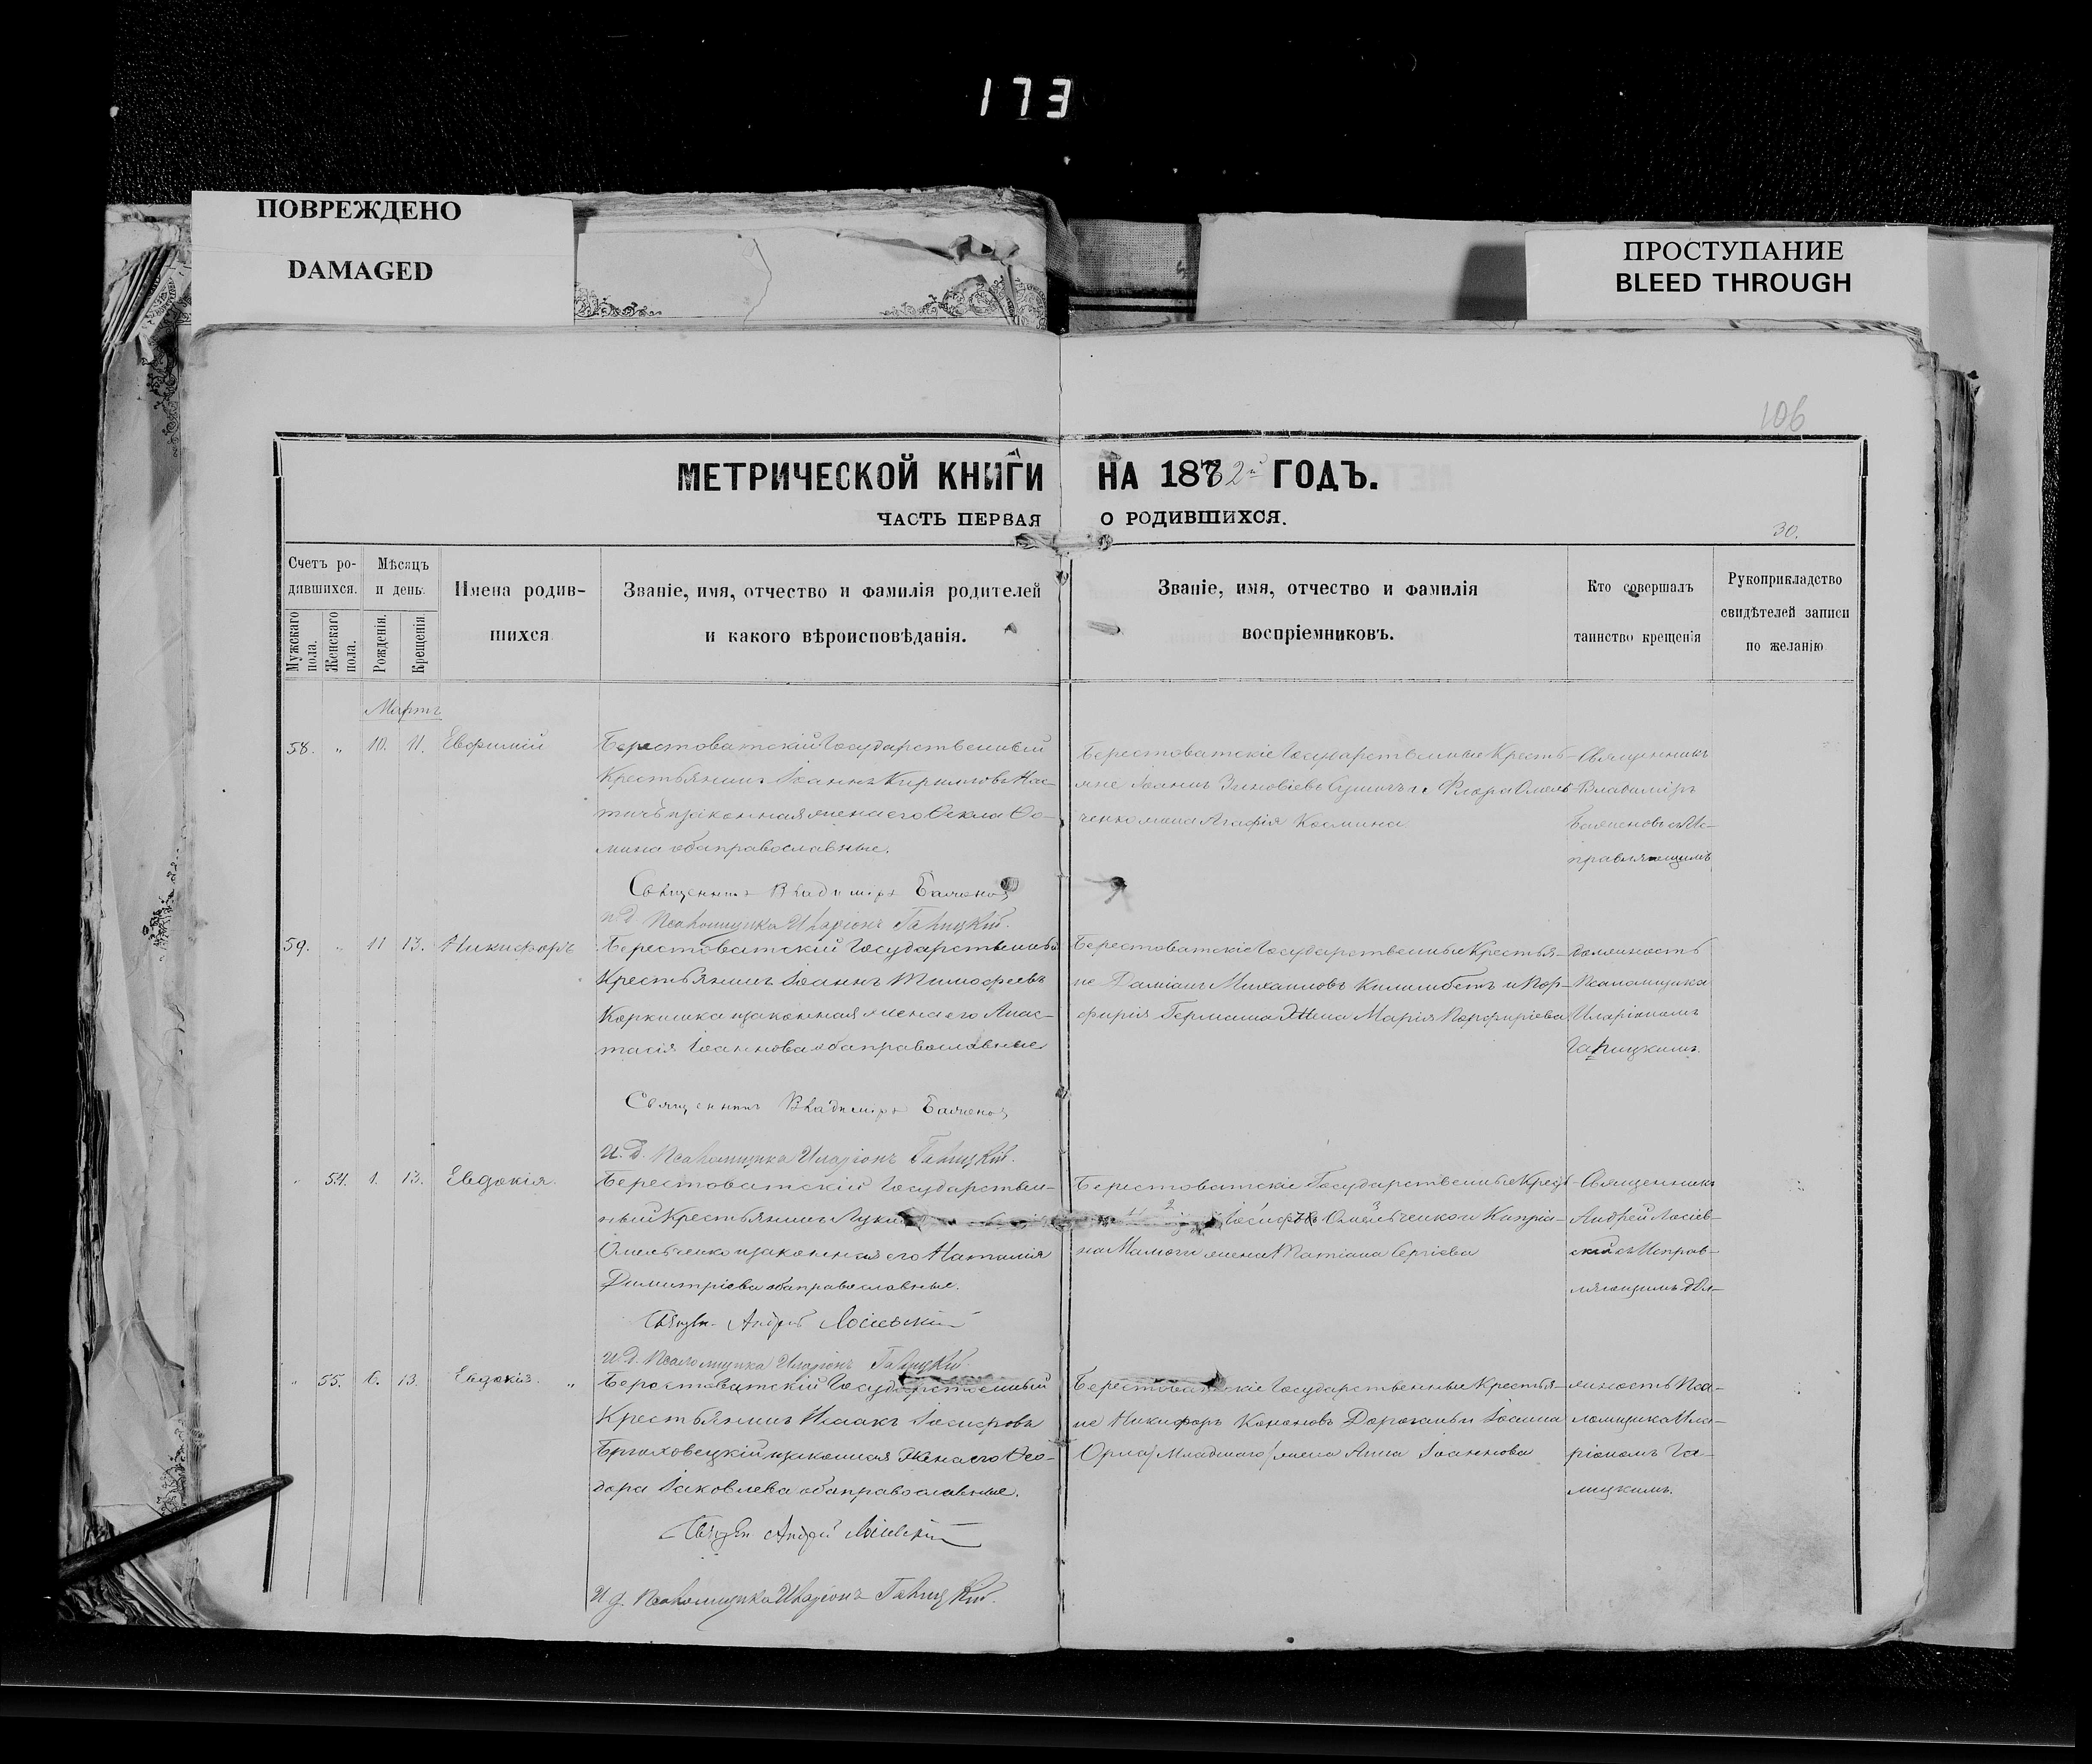 173
ПОВРЕЖДЕНО
DAMAGED
ПРОСТУПАНИЕ
BLEED THROUGH
106
МЕТРИЧЕСКОЙ КНИГИ НА 1882й ГОДЪ.
ЧАСТЬ ПЕРВАЯ О РОДИВШИХСЯ.
30.
Счетъ ро-
дившихся.
Мужскаго пола.
Женскаго пола.
Мѣсяцъ
и день.
Рожденія.
Крещенія.
Имена родив-
шихся
Званіе, имя, отчество и фамилія родителей
и какого вѣроисповѣданія.
Званіе, имя, отчество и фамилія
воспріемниковъ.
Кто совершалъ
таинство крещенія
Рукоприкладство
свидѣтелей записи
по желанію
Мартъ
58. " 10. 11. Евфимій
Берестоватскій Государственный
Крестьянинъ Іоаннъ Кириловъ
изаконная жена его Ѳекла Ѳо-
мина обаправославные.
Священникъ Владиміръ Баженовъ
И.Д. Псаломщика Иларіонъ Галицкій.
Берестоватскіе Государственные Кресть-
яне Іоаннъ Зиновіевъ и Флора Омель-
ченко жена Агафія Космина
Священникъ
Владиміръ
Баженовъ съ Ис-
правляющимъ
59. " 11 13. Никифоръ
Берестоватскій Государственный
Крестьянинъ Іоаннъ Тимофеевъ
Коркишка изаконная жена его Анас-
тасія Іоаннова обаправославные
Священникъ Владиміръ Баженовъ
И.Д. Псаломщика Иларіонъ Галицкій.
Берестоватскіе Государственные Крестья-
не Даміанъ Михаиловъ и Пор-
фирія Германа Жена Марія Порфиріева
должность
Псаломщика
Иларіономъ
Галицкимъ.
" 54. 1. 13. Евдокія.
Берестоватскій Государствен-
ный Крестьянинъ Лука
Омельченко изаконная его Наталія
Димитріева обаправославные.
Священ. Андрей Лосіевскій
И.Д. Псаломщика Иларіонъ Галицкій.
Берестоватскіе Государственные Кресть-
Іосифъ Омельченко и Кипріа-
на жена Татіана Сергіева
Священникъ
Андрей Лосіев-
скій съ Исправ-
ляющимъ дол-
" 55. 6. 13. Евдокія. "
Берестоватскій Государственный
Крестьянинъ Исаакъ Іосифовъ
Брюховецкій изаконная Жена его Ѳео-
дора Іаковлева обаправославные.
Священ Андрей Лосіевскій
И.Д. Псаломщика Иларіонъ Галицкій.
Берестоватскіе Государственные Крестья-
не Никифоръ Кононовъ и Іоанна
Орла /Младшаго/ жена Анна Іоаннова
жность Пса-
ломщика Ила-
ріономъ Га-
лицкимъ.